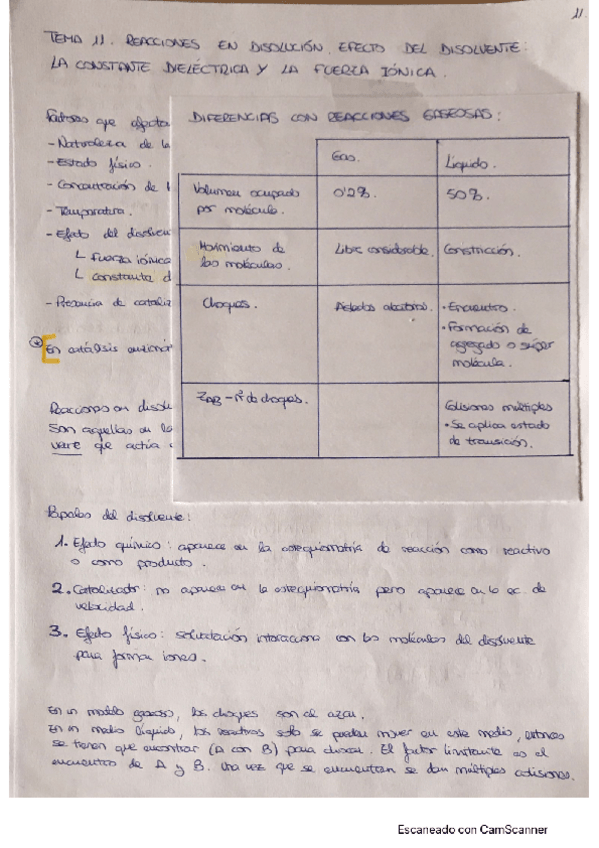 11.
TEMA 11. REACCIONES EN DISOLUCIÓN. EFECTO DEL DISOLVENTE:
LA CONSTANTE DIELÉCTRICA Y LA FUERZA IÓNICA.
Factores que afecta
- Naturaleza de la
- Estado físico.
- Concentración de
- Temperatura.
- Efecto del disolven
fuerza iónica
constante d
- Presencia de cataliz
En catálisis enzimá
Reacciones en disolu
Son aquellas en la
que actúa
DIFERENCIAS CON REACCIONES GASEOSAS:
Gas. Líquido.
Volumen ocupado 0'2%. 50%.
por molécula.
Movimiento de Libre considerable. Constricción.
las moléculas.
Choques. Aislados aleatorios. • Encuentro.
• Formación de
agregado o súper
molécula.
ZAB - nº de choques. Colisiones múltiples
• Se aplica estado
de transición.
Papeles del disolvente:
1. Efecto químico: aparece en la estequiometría de reacción como reactivo
o como producto.
2. Catalizador: no aparece en la estequiometría pero aparece en la ec. de
velocidad.
3. Efecto físico: solvatación interacciona con las moléculas del disolvente
para formar iones.
En un modelo gaseoso, los choques son al azar.
En un medio líquido, los reactivos solo se pueden mover en este medio, entonces
se tienen que encontrar (A con B) para chocar. El factor limitante es el
encuentro de A y B. Una vez que se encuentran se dan múltiples colisiones.
Escaneado con CamScanner